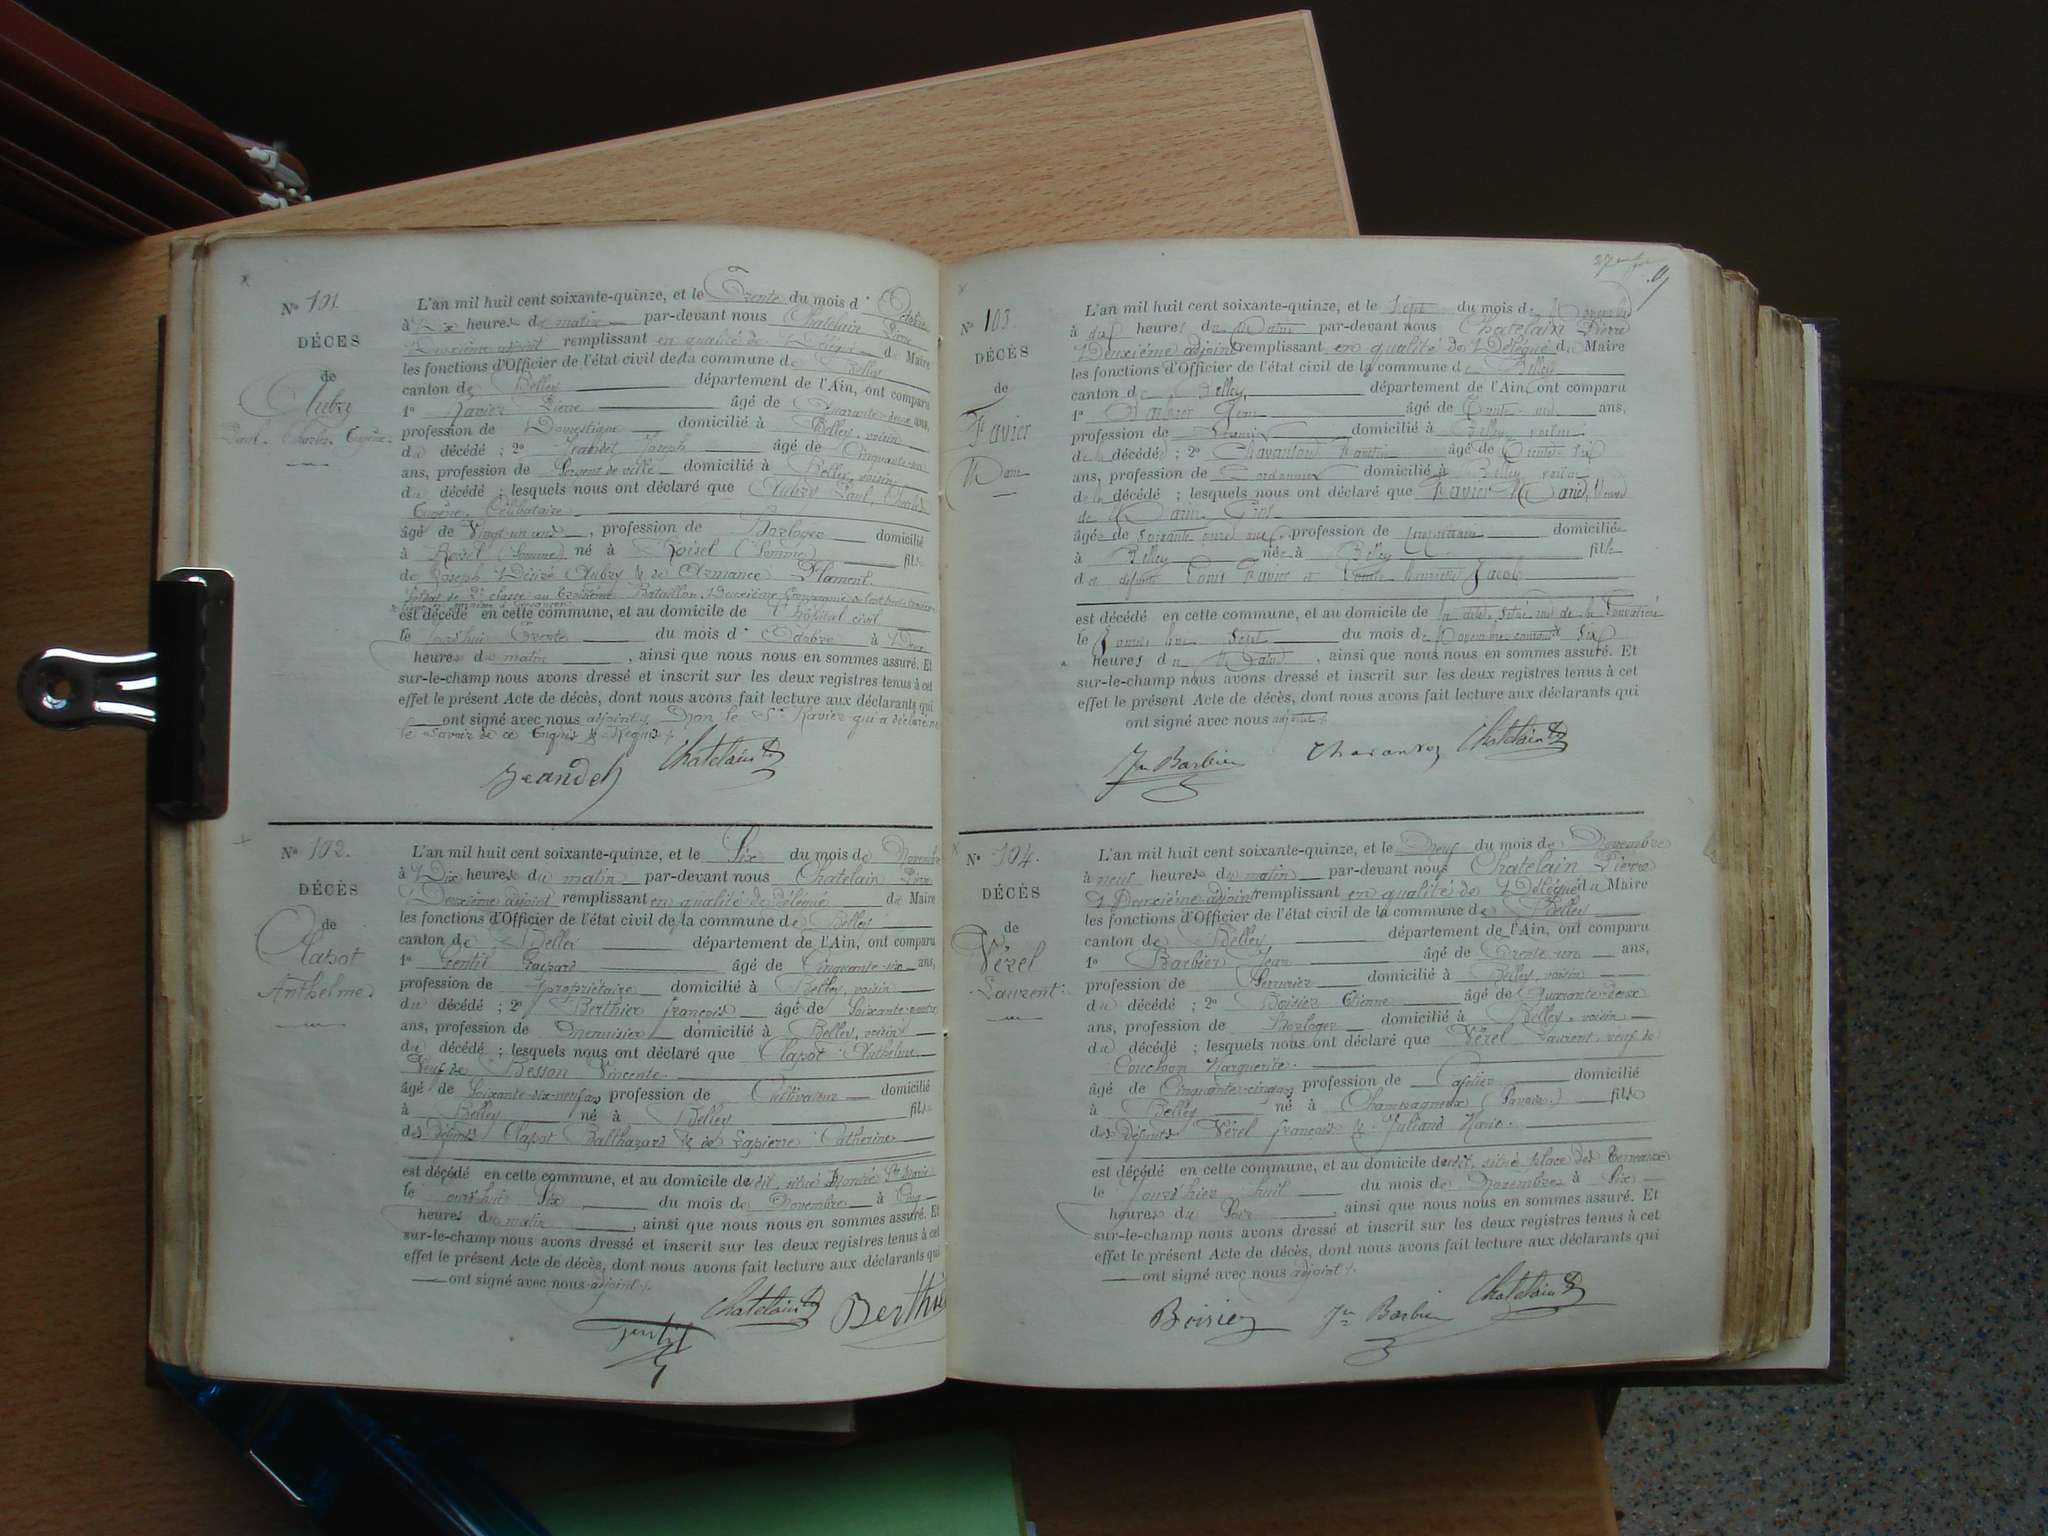 Nº 101.
DÉCÈS
de
Aubry
Paul, Charles, Eugène.
L'an mil huit cent soixante-quinze, et le Trente du mois d'Octobre
à Dix heures du matin par-devant nous Chatelain Pierre
Deuxième adjoint remplissant en qualité de Délégué du Maire
les fonctions d'Officier de l'état civil de la commune de Belley
canton de Belley département de l'Ain, ont comparu
1º Ravier Pierre âgé de Quarante-deux ans,
profession de Domestique domicilié à Belley, voisin
du décédé ; 2º Jeandet Joseph âgé de Cinquante-un
ans, profession de Sergent de ville domicilié à Belley, voisin
du décédé ; lesquels nous ont déclaré que Aubry Paul, Charles
Eugène, Célibataire
âgé de Vingt-un ans, profession de Horloger domicilié
à Roisel (Somme) né à Roisel (Somme) fils
de Joseph Désiré Aubry & de Armance Flament
Soldat de 2e classe au Troisième Bataillon, Deuxième Compagnie
est décédé en cette commune, et au domicile de l'hôpital civil
le jourd'hui Trente du mois d'Octobre à Deux
heures du matin, ainsi que nous nous en sommes assuré. Et
sur-le-champ nous avons dressé et inscrit sur les deux registres tenus à cet
effet le présent Acte de décès, dont nous avons fait lecture aux déclarants qui
ont signé avec nous adjoint, Non le Sr Ravier qui a déclaré ne
le savoir de ce Enquis & Requis
Jeandet Chatelain
Nº 102.
DÉCÈS
de
Clapot
Anthelme
L'an mil huit cent soixante-quinze, et le Six du mois de Novembre
à Dix heures du matin par-devant nous Chatelain Pierre
Deuxième adjoint remplissant en qualité de délégué du Maire
les fonctions d'Officier de l'état civil de la commune de Belley
canton de Belley département de l'Ain, ont comparu
1º Gentil Gaspard âgé de Cinquante-six ans,
profession de propriétaire domicilié à Belley, voisin
du décédé ; 2º Berthier françois âgé de Soixante-quatre
ans, profession de menuisier domicilié à Belley, voisin
du décédé ; lesquels nous ont déclaré que Clapot Anthelme
Veuf de Besson Vincente
âgé de Soixante-six-neuf ans, profession de Cultivateur domicilié
à Belley né à Belley fils
des défunts Clapot Balthazard & de Lapierre Catherine
est décédé en cette commune, et au domicile de dit, situé Montée Ste Marie
le jourd'hui Six du mois de Novembre à Cinq
heures du matin, ainsi que nous nous en sommes assuré. Et
sur-le-champ nous avons dressé et inscrit sur les deux registres tenus à cet
effet le présent Acte de décès, dont nous avons fait lecture aux déclarants qui
ont signé avec nous adjoint
Gentil Chatelain Berthier
Nº 103.
DÉCÈS
de
Favier
L'an mil huit cent soixante-quinze, et le Sept du mois de Novembre
à dix heures du Matin par-devant nous Chatelain Pierre
Deuxième adjoint remplissant en qualité de Délégué du Maire
les fonctions d'Officier de l'état civil de la commune de Belley
canton de Belley, département de l'Ain, ont comparu
1º Barbier Jean âgé de Trente-un ans,
profession de Serrurier domicilié à Belley voisin
de la décédée ; 2º Chavanton âgé de Trente-six
ans, profession de Cordonnier domicilié à Belley voisin
de la décédée ; lesquels nous ont déclaré que Favier
âgée de soixante onze ans, profession de domicilié
à Belley née à Belley fille
de défunts Louis Favier et Jacob
est décédé en cette commune, et au domicile de la dite, situé rue de la
le Jourd'hui Sept du mois de Novembre courant à Six
heures du Matin, ainsi que nous nous en sommes assuré. Et
sur-le-champ nous avons dressé et inscrit sur les deux registres tenus à cet
effet le présent Acte de décès, dont nous avons fait lecture aux déclarants qui
ont signé avec nous adjoint
Jn Barbier Chavanton Chatelain
Nº 104.
DÉCÈS
de
Vérel
Laurent
L'an mil huit cent soixante-quinze, et le Neuf du mois de Novembre
à neuf heures du matin par-devant nous Chatelain Pierre
Deuxième adjoint remplissant en qualité de Délégué du Maire
les fonctions d'Officier de l'état civil de la commune de Belley
canton de Belley département de l'Ain, ont comparu
1º Barbier Jean âgé de Trente-un ans,
profession de Serrurier domicilié à Belley, voisin
du décédé ; 2º Boisier Etienne âgé de Quarante-deux
ans, profession de Horloger domicilié à Belley, voisin
du décédé ; lesquels nous ont déclaré que Vérel Laurent, veuf de
Couchon Marguerite
âgé de Cinquante-cinq ans, profession de Cafetier domicilié
à Belley né à Champagneux (Savoie) fils
des Défunts Vérel françois & Juliand Marie
est décédé en cette commune, et au domicile de dit, situé place des Terreaux
le Jourd'hier huit du mois de Novembre à Six
heures du Soir, ainsi que nous nous en sommes assuré. Et
sur-le-champ nous avons dressé et inscrit sur les deux registres tenus à cet
effet le présent Acte de décès, dont nous avons fait lecture aux déclarants qui
ont signé avec nous adjoint
Boisier Jn Barbier Chatelain